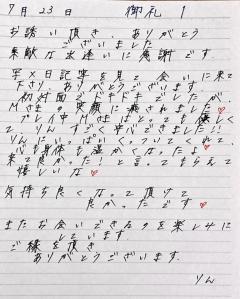 7月23日 御礼 1
お誘い頂き、ありがとう
ございました
素敵な出逢いに感謝です
写メ日記等を見て会いに来て
下さり ありがとうございます
初対面 でしたが
Mさまの笑顔に癒されました♡
プレイ中Mさまはとっても優しく
て、りん すごく安心できました!!
りんもいっぱいくっついてくれて、
心も身体も温かくなったよ♡
来て良かった!と言ってもらえて
嬉しいな♡
気持ち良くなって頂けて
良かったです♡
またお会いできるのを楽しみに
しています
ご縁を頂き
ありがとうございます
りん